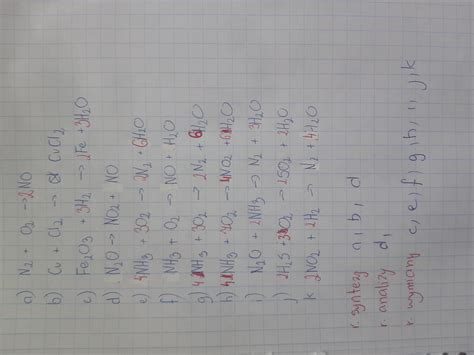 a) N2 + O2 → 2NO
b) Cu + Cl2 → CuCl2
c) Fe2O3 + 3H2 → 2Fe + 3H2O
d) N2O → NO2 + NO
e) 4NH3 + 3O2 → 2N2 + 6H2O
f) NH3 + O2 → NO + H2O
g) 4NH3 + 3O2 → 2N2 + 6H2O
h) 4NH3 + O2 → 4NO2 + 6H2O
i) N2O + 2NH3 → N2 + 3H2O
j) 2H2S + 3O2 → 2SO2 + 2H2O
k 2NO2 + 2H2 → N2 + 4H2O
r. syntezy a, b, d
r. analizy d,
r. wymiany c, e, f, g, h, i, j, k